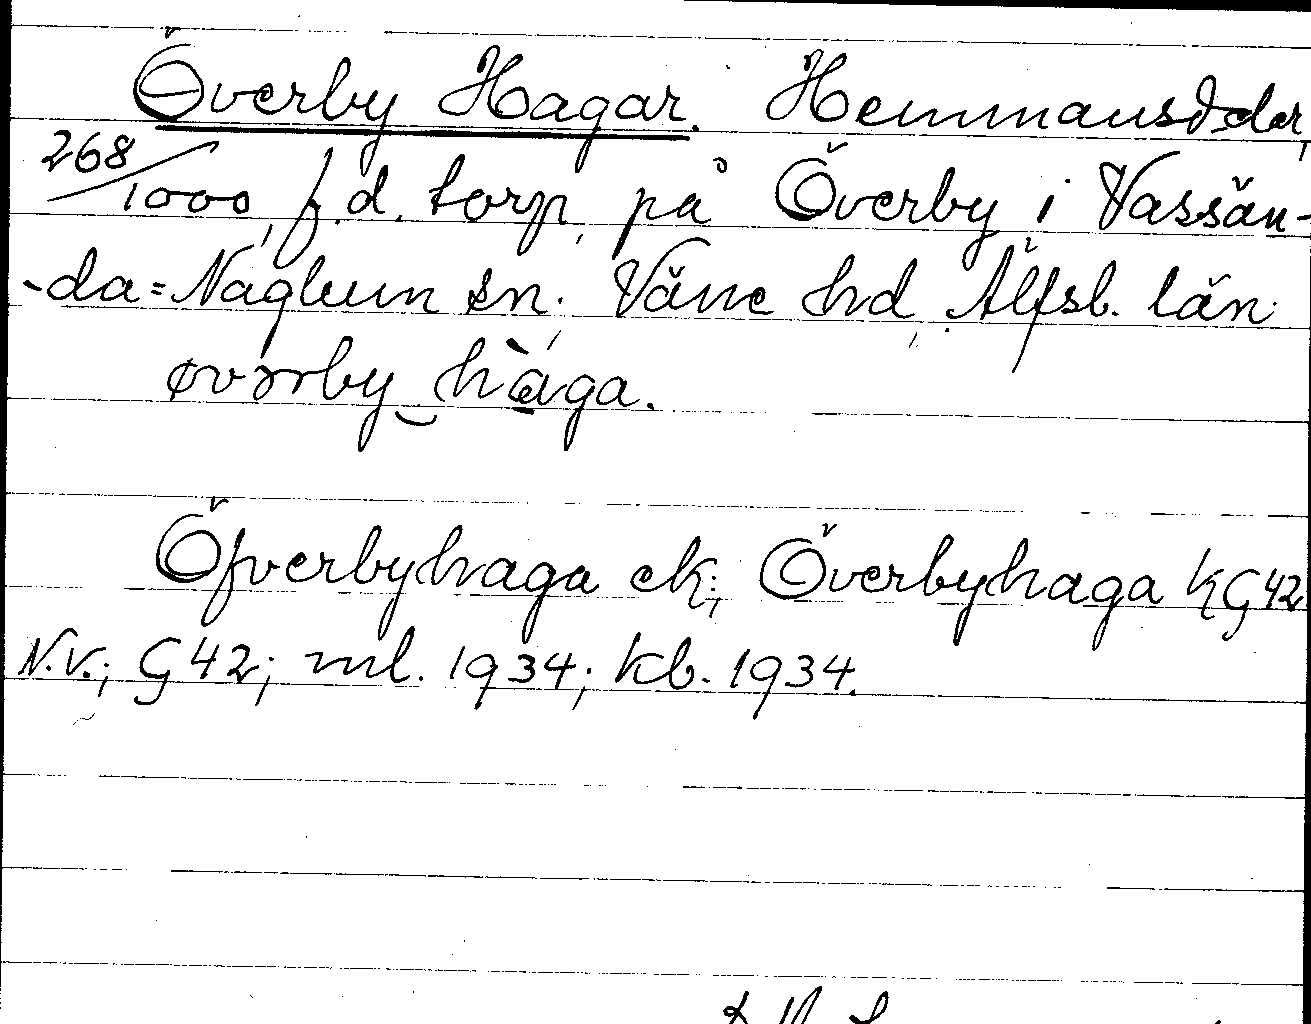 Överby Hagar. Hemmansdelar,
268/1000, f.d. torp, på Överby i Vassän-
-da=Naglum sn. Väne hd, Älfsb. län.
øvərby‿hàga.
Öfverbyhaga ek; Överbyhaga KG42
N.V.; G42; ml. 1934; kb. 1934.